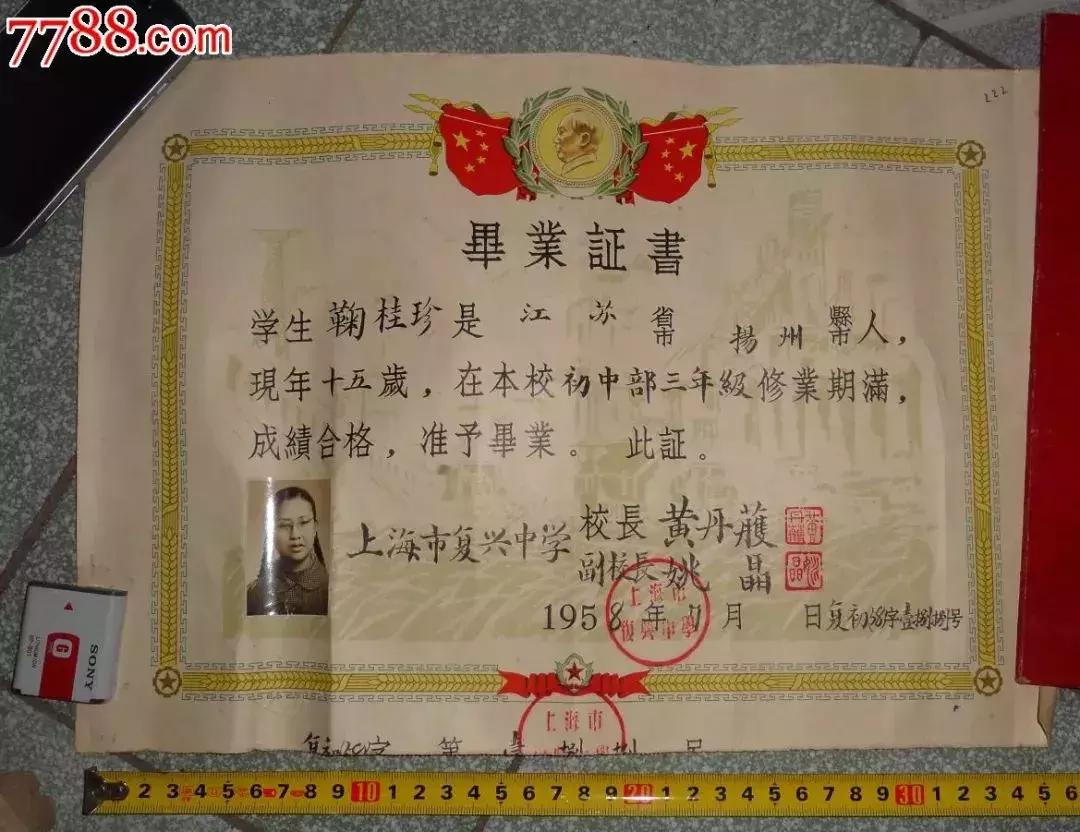 7788.com
222
畢業証書
学生鞠桂珍是江苏省市揚州縣市人，
現年十五歲，在本校初中部三年級修業期滿，
成績合格，准予畢業。此証。
上海市复兴中学
校長 黄丹艧
副校長 姚晶
1958年7月 日复初58字壹捌捌号
上海市
復興中學
上海市
第 壹 捌 捌 号
SONY
G
2 3 4 5 6 7 8 9 10 1 2 3 4 5 6 7 8 9 20 1 2 3 4 5 6 7 8 9 30 1 2 3 4 5 6